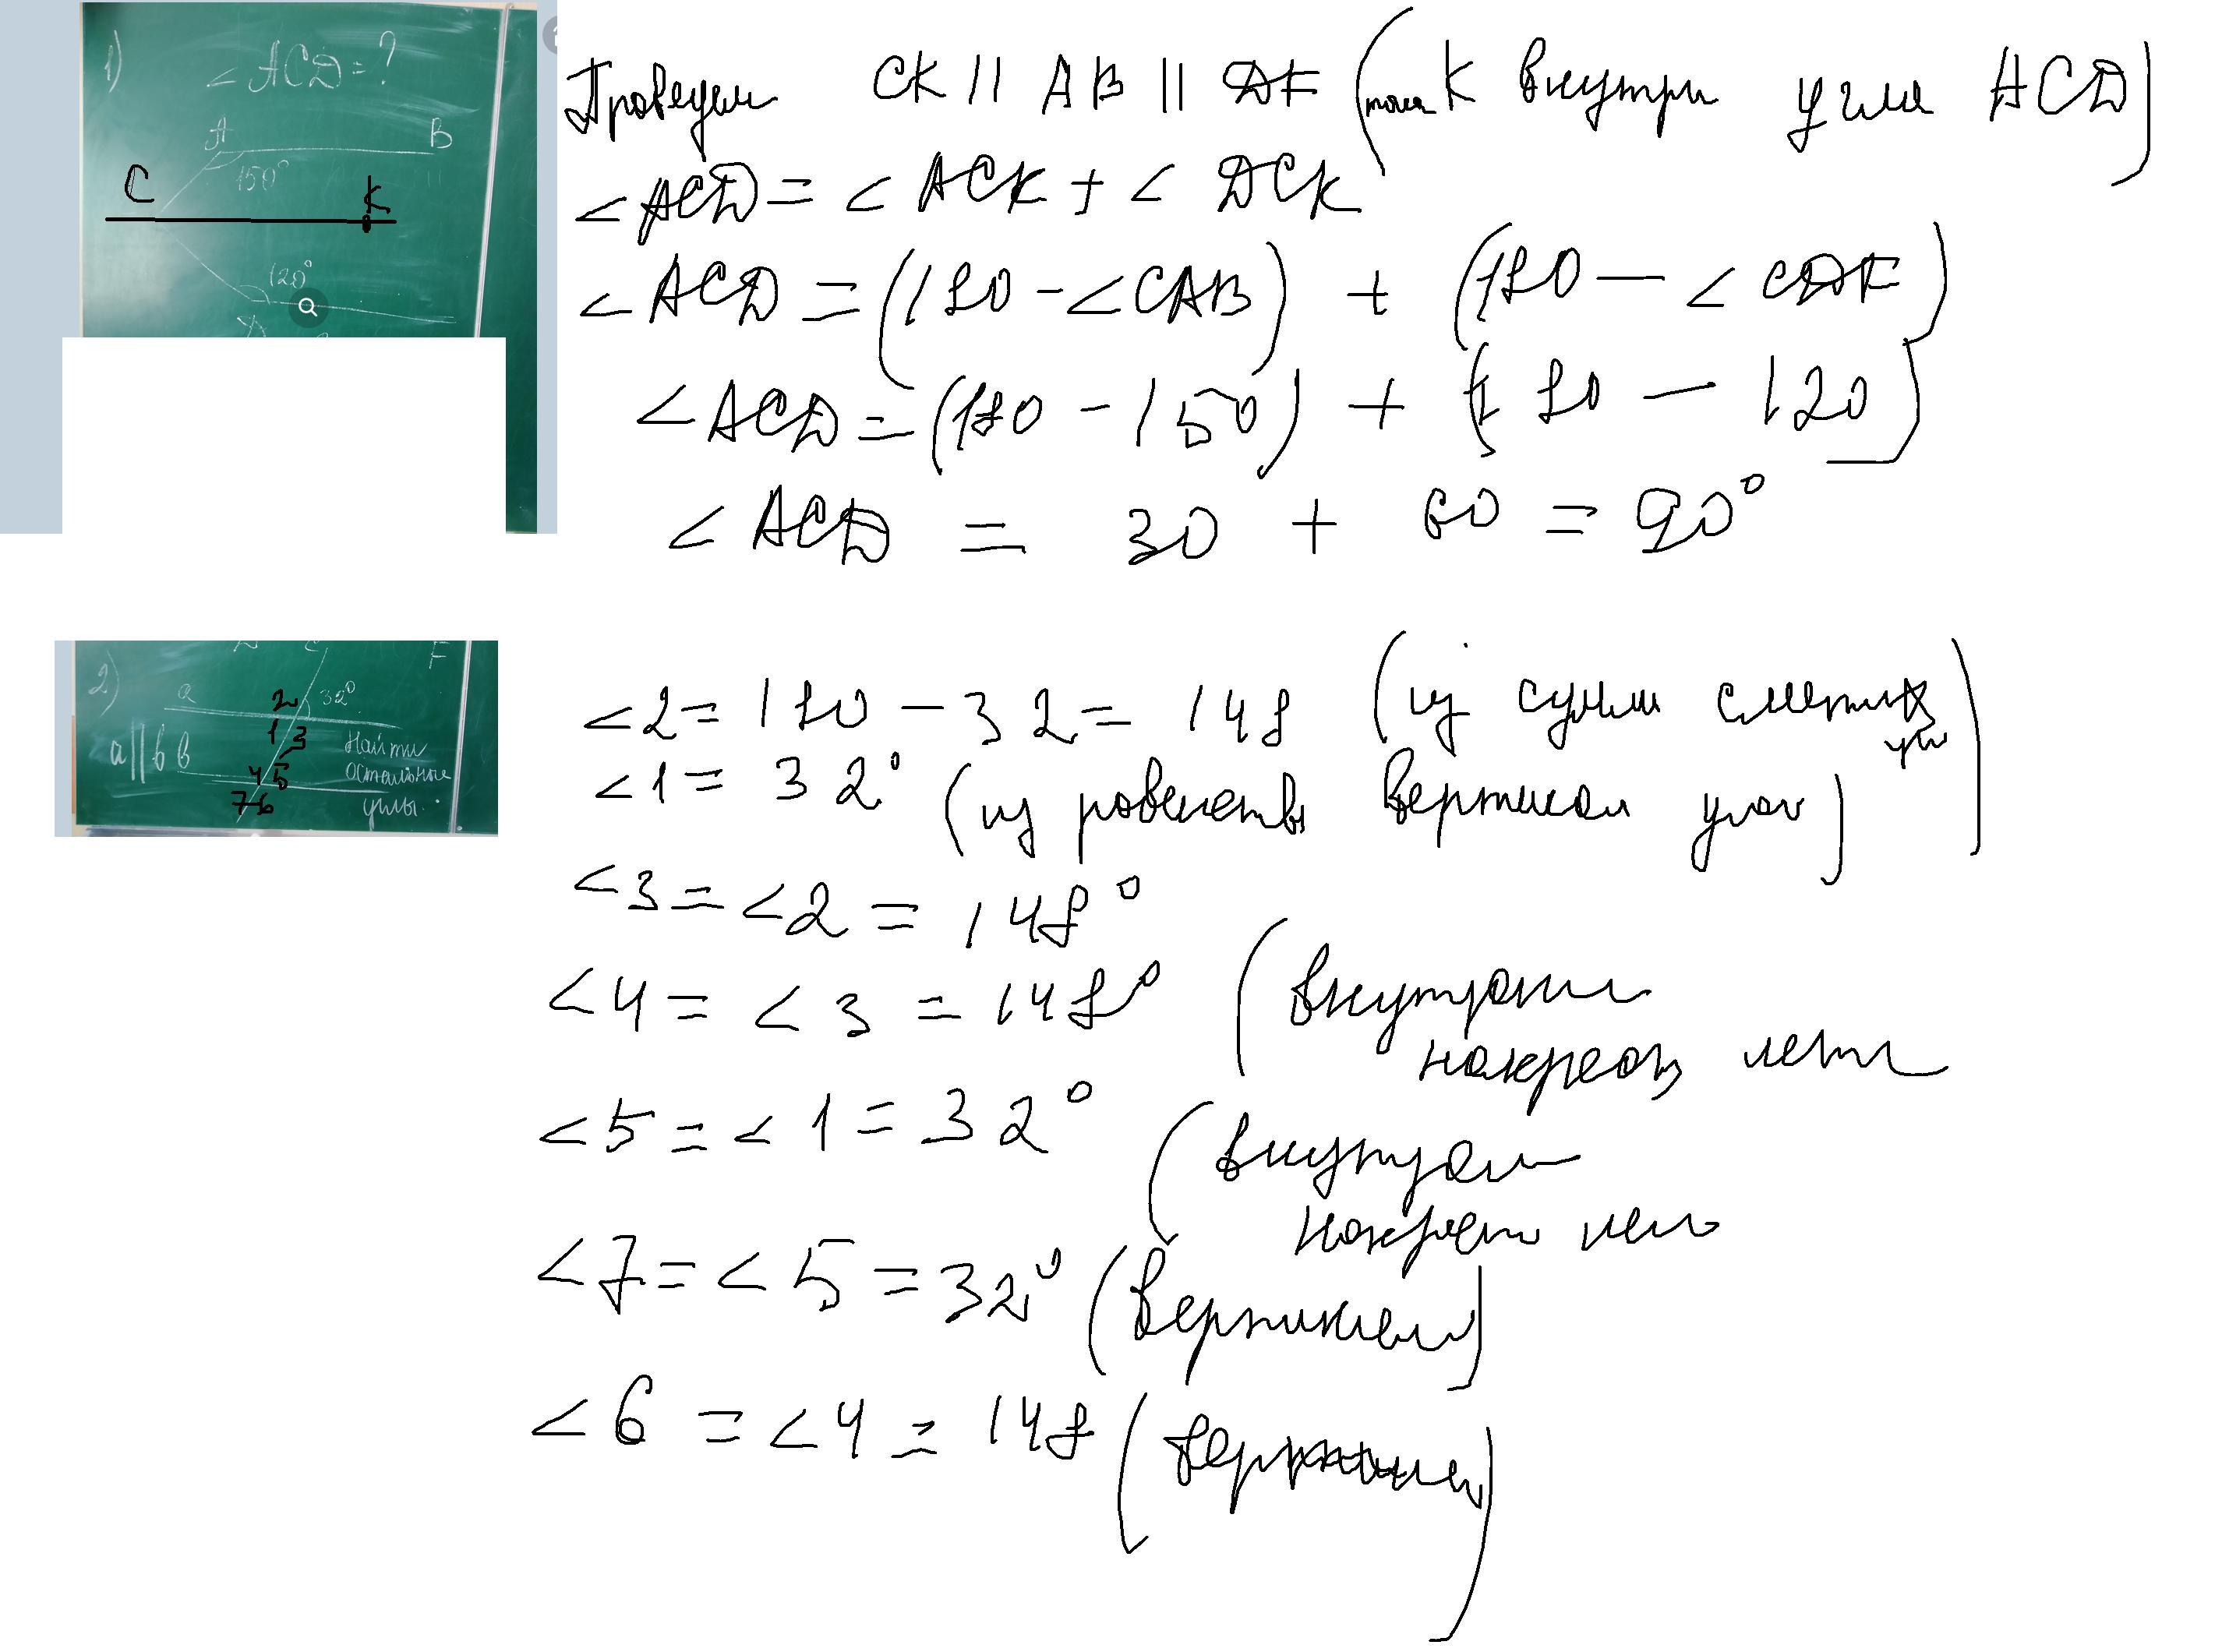 1)
∠ACD = ?
A B
150°
C K
120°
D
Проведем CK || AB || DF (точка K внутри угла ACD)
∠ACD = ∠ACK + ∠DCK
∠ACD = (180 - ∠CAB) + (180 - ∠CDF)
∠ACD = (180 - 150) + (180 - 120)
∠ACD = 30 + 60 = 90°
2) c F
a 2 32°
1 3
a||b b Найти
4 5 остальные
7 6 углы.
∠2 = 180 - 32 = 148 (из суммы смежных
∠1 = 32° (из равенства вертикал углов)
∠3 = ∠2 = 148°
∠4 = ∠3 = 148° (внутренние
накрест леж
∠5 = ∠1 = 32° (внутрен
накрест леж
∠7 = ∠5 = 32° (вертикал)
∠6 = ∠4 = 148 (вертикал)